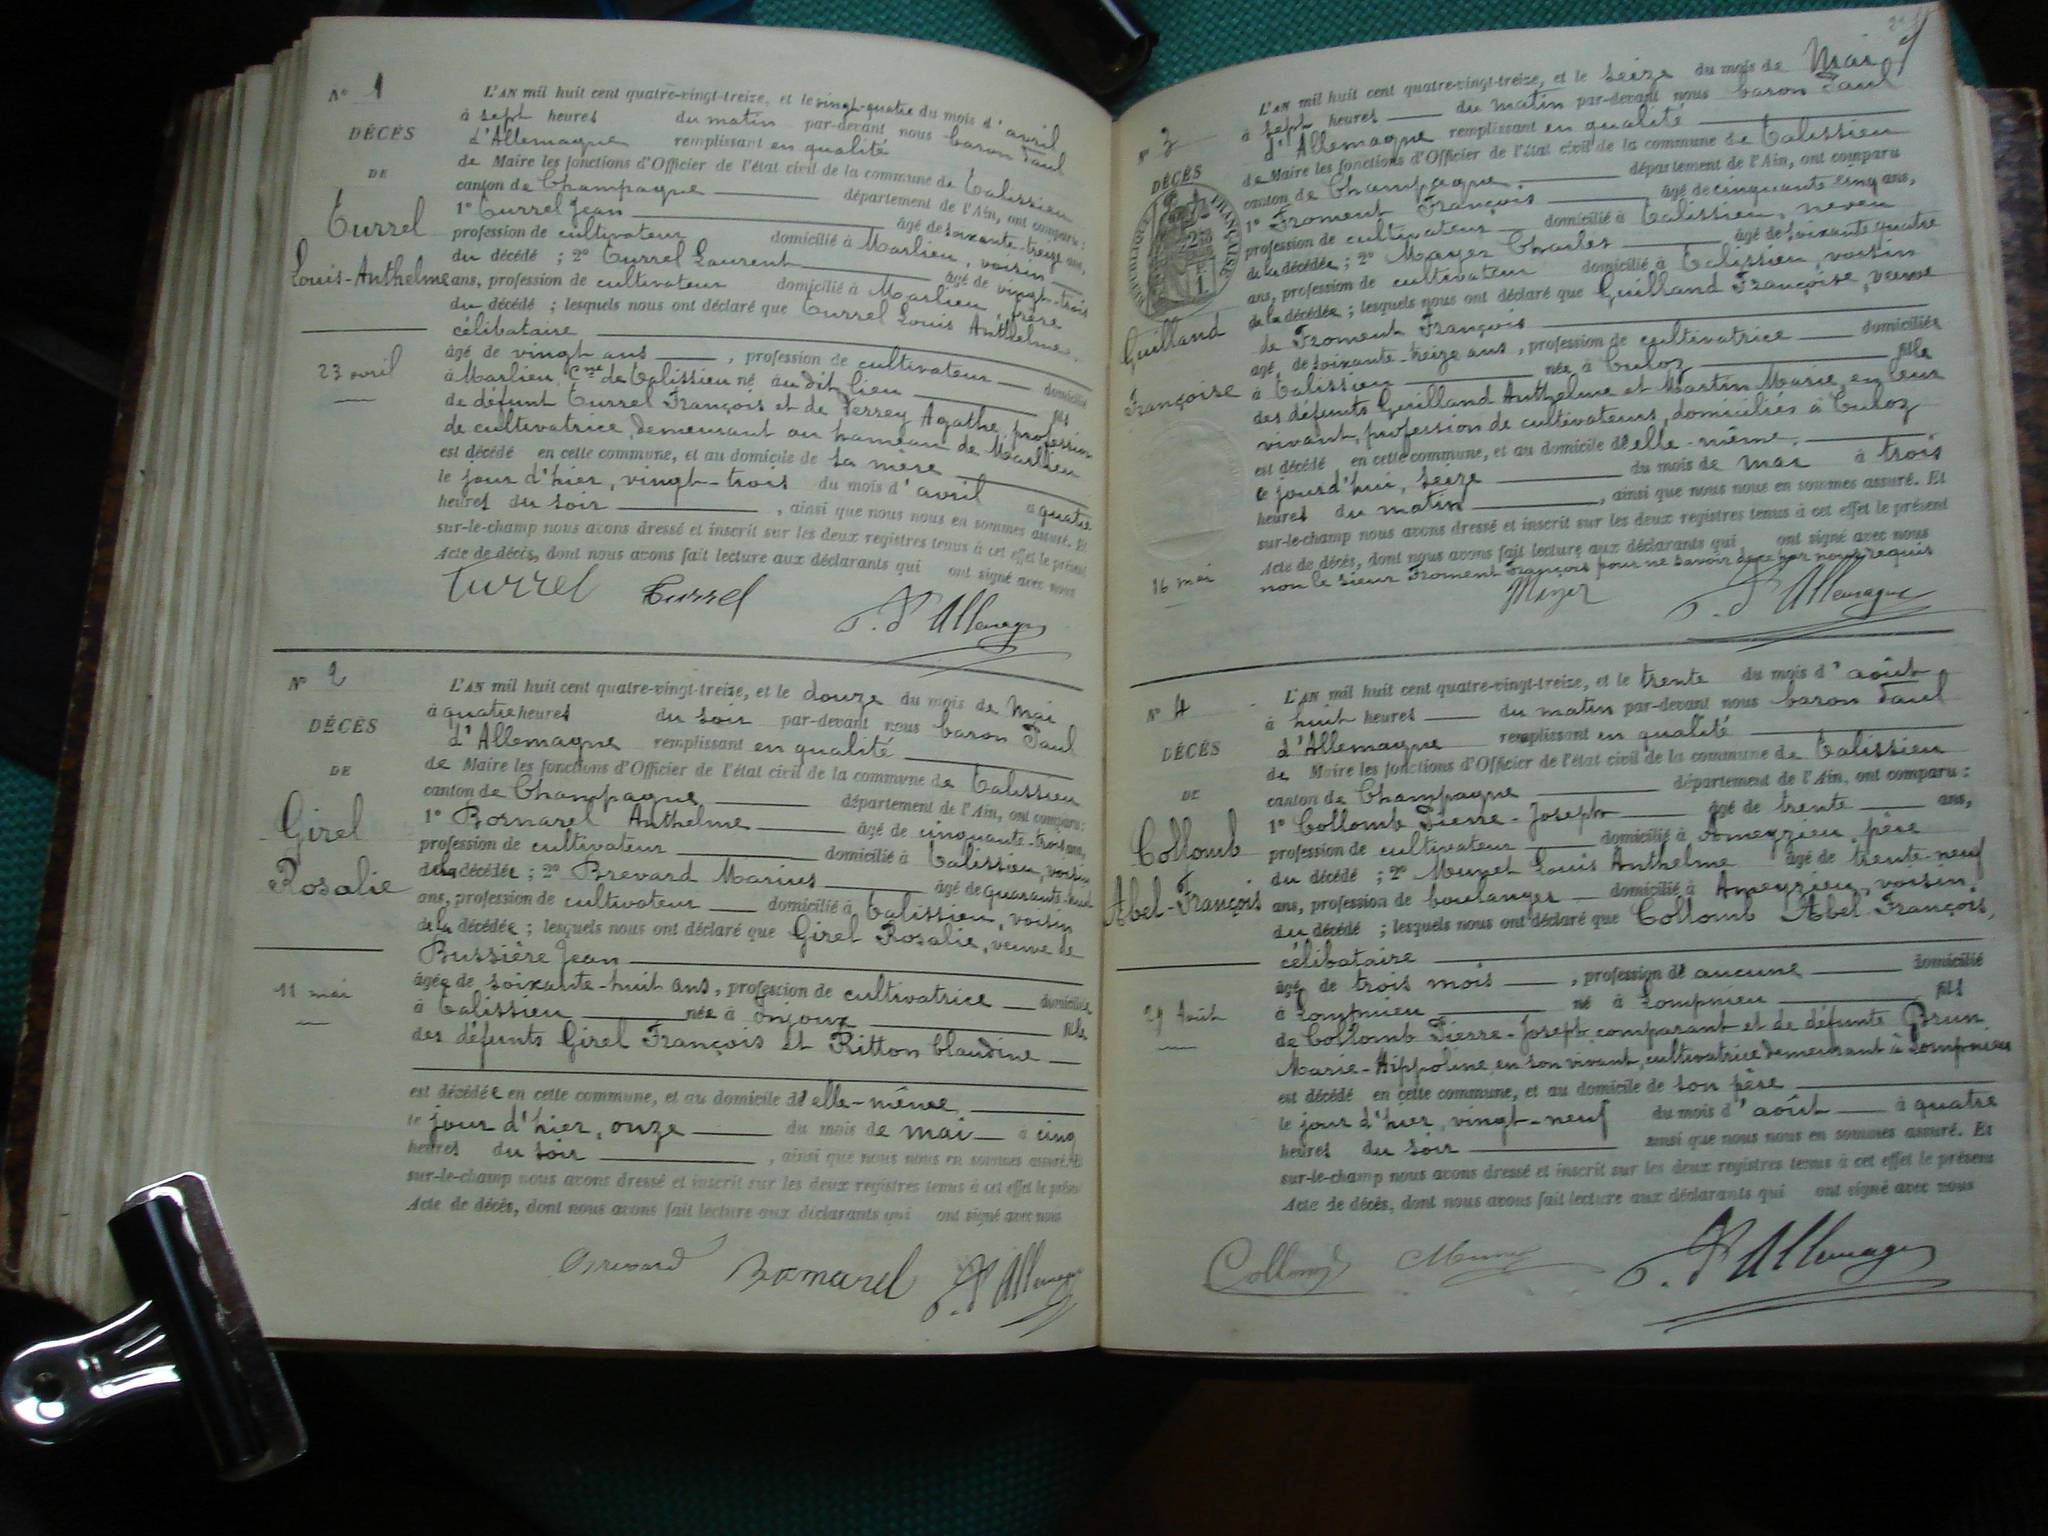 N° 1
DÉCÈS
DE
Turrel
Louis-Anthelme
23 avril
L'AN mil huit cent quatre-vingt-treize, et le vingt-quatre du mois d'avril
à sept heures du matin par-devant nous baron Paul
d'Allemagne remplissant en qualité
de Maire les fonctions d'Officier de l'état civil de la commune de Talissieu
canton de Champagne département de l'Ain, ont comparu :
1° Turrel Jean âgé de soixante-treize ans,
profession de cultivateur domicilié à Marlieu, voisin
du décédé ; 2° Turrel Laurent âgé de vingt-trois
ans, profession de cultivateur domicilié à Marlieu, frère
du décédé ; lesquels nous ont déclaré que Turrel Louis Anthelme,
célibataire
âgé de vingt ans, profession de cultivateur domicilié
à Marlieu, Cne de Talissieu né au dit lieu fils
de défunt Turrel François et de Perrey Agathe, profession
de cultivatrice, demeurant au hameau de Marlieu
est décédé en cette commune, et au domicile de sa mère
le jour d'hier, vingt-trois du mois d'avril à quatre
heures du soir, ainsi que nous nous en sommes assuré. Et
sur-le-champ nous avons dressé et inscrit sur les deux registres tenus à cet effet le présent
Acte de décès, dont nous avons fait lecture aux déclarants qui ont signé avec nous
Turrel Turrel P. d'Allemagne
N° 2
DÉCÈS
DE
Girel
Rosalie
11 mai
L'AN mil huit cent quatre-vingt-treize, et le douze du mois de Mai
à quatre heures du soir par-devant nous baron Paul
d'Allemagne remplissant en qualité
de Maire les fonctions d'Officier de l'état civil de la commune de Talissieu
canton de Champagne département de l'Ain, ont comparu :
1° Bornarel Anthelme âgé de cinquante-trois ans,
profession de cultivateur domicilié à Talissieu, voisin
de la décédée ; 2° Brevard Marius âgé de quarante-huit
ans, profession de cultivateur domicilié à Talissieu, voisin
de la décédée ; lesquels nous ont déclaré que Girel Rosalie, veuve de
Bussière Jean
âgée de soixante-huit ans, profession de cultivatrice domiciliée
à Talissieu née à Onjoux fille
des défunts Girel François et Ritton Claudine
est décédée en cette commune, et au domicile d'elle-même,
le jour d'hier, onze du mois de mai à cinq
heures du soir, ainsi que nous nous en sommes assuré. Et
sur-le-champ nous avons dressé et inscrit sur les deux registres tenus à cet effet le présent
Acte de décès, dont nous avons fait lecture aux déclarants qui ont signé avec nous
Brevard Bornarel P. d'Allemagne
N° 3
DÉCÈS
RÉPUBLIQUE FRANÇAISE
Guilland
Françoise
16 mai
L'AN mil huit cent quatre-vingt-treize, et le seize du mois de Mai
à sept heures du matin par-devant nous baron Paul
d'Allemagne remplissant en qualité
de Maire les fonctions d'Officier de l'état civil de la commune de Talissieu
canton de Champagne département de l'Ain, ont comparu
1° Froment François âgé de cinquante cinq ans,
profession de cultivateur domicilié à Talissieu, neveu
de la décédée ; 2° Mayer Charles âgé de soixante quatre
ans, profession de cultivateur domicilié à Talissieu, voisin
de la décédée ; lesquels nous ont déclaré que Guilland Françoise, veuve
de Froment François
âgé de soixante-treize ans, profession de cultivatrice domiciliée
à Talissieu née à Culoz fille
des défunts Guilland Anthelme et Martin Marie, en leur
vivant, profession de cultivateurs, domiciliés à Culoz
est décédé en cette commune, et au domicile d'elle-même,
le jourd'hui, seize du mois de mai à trois
heures du matin, ainsi que nous nous en sommes assuré. Et
sur-le-champ nous avons dressé et inscrit sur les deux registres tenus à cet effet le présent
Acte de décès, dont nous avons fait lecture aux déclarants qui ont signé avec nous
non le sieur Froment François pour ne savoir de ce par nous requis
Mayer P. d'Allemagne
N° 4
DÉCÈS
DE
Collomb
Abel-François
29 août
L'AN mil huit cent quatre-vingt-treize, et le trente du mois d'août
à huit heures du matin par-devant nous baron Paul
d'Allemagne remplissant en qualité
de Maire les fonctions d'Officier de l'état civil de la commune de Talissieu
canton de Champagne département de l'Ain, ont comparu :
1° Collomb Pierre-Joseph âgé de trente ans,
profession de cultivateur domicilié à Ameyzieu, père
du décédé ; 2° Muret Louis Anthelme âgé de trente-neuf
ans, profession de boulanger domicilié à Ameyzieu, voisin
du décédé ; lesquels nous ont déclaré que Collomb Abel François,
célibataire
âgé de trois mois, profession d'aucune domicilié
à Lompnieu né à Lompnieu fils
de Collomb Pierre-Joseph comparant et de défunte Brun
Marie-Hippoline, en son vivant, cultivatrice demeurant à Lompnieu
est décédé en cette commune, et au domicile de son père
le jour d'hier, vingt-neuf du mois d'août à quatre
heures du soir ainsi que nous nous en sommes assuré. Et
sur-le-champ nous avons dressé et inscrit sur les deux registres tenus à cet effet le présent
Acte de décès, dont nous avons fait lecture aux déclarants qui ont signé avec nous
Collomb P. d'Allemagne